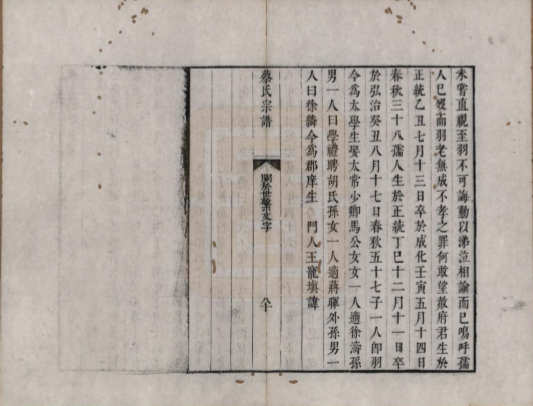 未嘗直視至羽不可誨動以涕泣相諭而已嗚呼孺
人已歿而羽老無成不孝之罪何敢望故府君生於
正統乙丑七月十三日卒於成化壬寅五月十四日
春秋三十八孺人生於正統丁巳十二月十一日卒
於弘治癸丑八月十七日春秋五十七子一人即羽
今為太學生娶太常少卿馬公女女一人適徐濤孫
男一人曰學禮聘胡氏孫女一人適蔣暉外孫男一
人曰徐今為郡庠生 門人王寵填諱
蔡氏宗譜
關於世系文字
八十